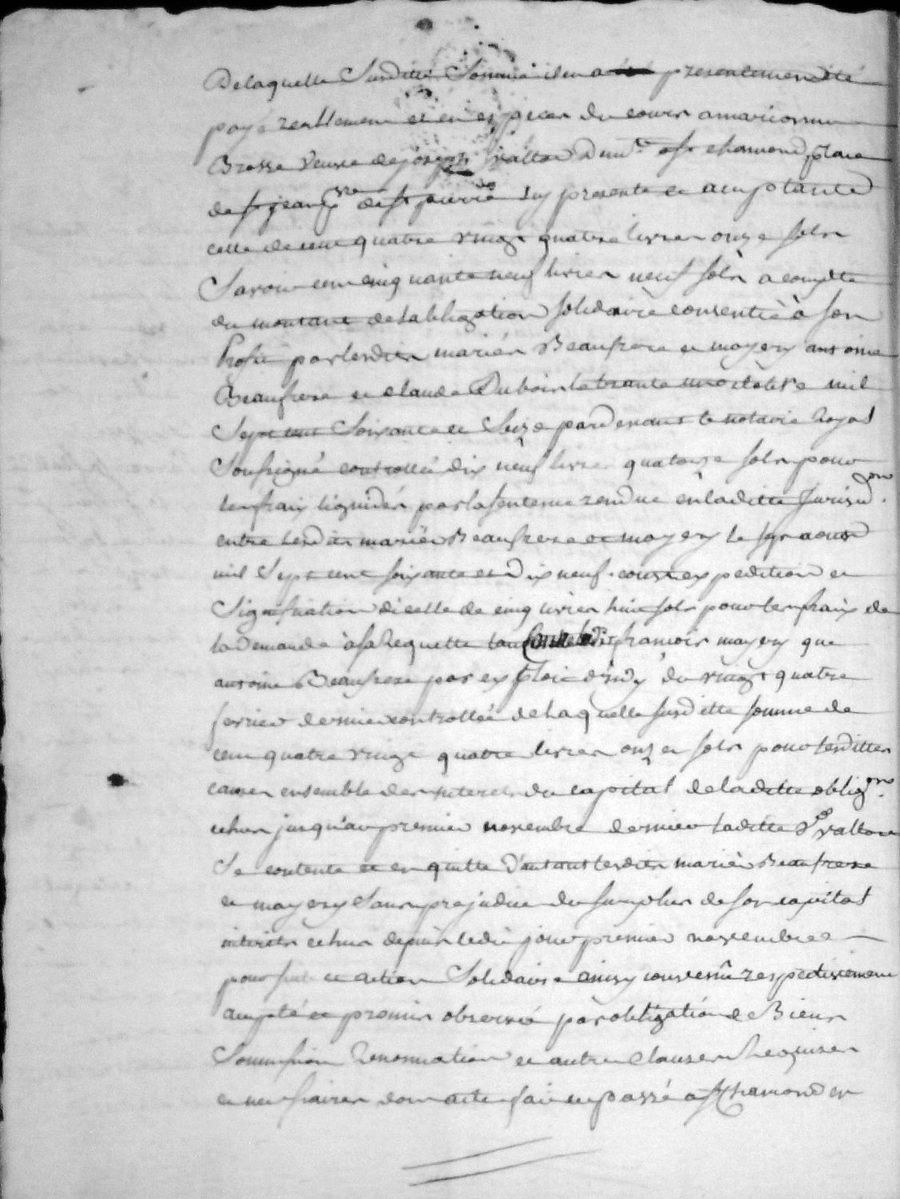 De laquelle Susditte Somme il en a presentement eté
payé reellement et en especes du cours a marianne
Brosse veuve de joseph valton Dmte a st chamond place
de st jean psse de st pierre icy presente et acceptante
celle de cent quatre vingt quatre livres onze sols
Savoir cent cinquante neuf livres neuf sols a compte
du montant de l'abligation solidaire consentie à son
Profit par lesdits mariés Beaufrere et mayery antoine
Beaufrere et claude Dubois le trante un octobre mil
Sept cent Soixante et Seize pardevant le notaire Royal
Soussigné controllée dix neuf livres quatorze sols pour
les frais liquidés par la sentence rendue en laditte Jurisdon
entre lesdits mariés Beaufrere et mayery le aoust
mil Sept cent soixante et dix neuf. cours expedition et
Signification dicelle et cinq livres huit sols pour les frais de
la demande à sa Requette contre ledit françois mayery que
antoine Beaufrere par exploit d'indy du vingt quatre
fevrier dernier controllée de laquelle susditte somme de
cent quatre vingt quatre livres onze sols pour lesdittes
causes ensemble des interets du capital de laditte obligon.
echus jusqu'au premier novembre dernier laditte ve valton
Se contente et en quitte d'autant lesdits mariés Beaufrere
et mayery Sans prejudice du surplus de son capital
interets echus depuis ledit jour premier novembre
poursuite et action Solidaire ainsy convenû respectivement
accepté et promis observé par obligation de Biens
Soumission Renonciation et autres clauses Requises
et necessaires dont acte fait et passé a st Chamond en